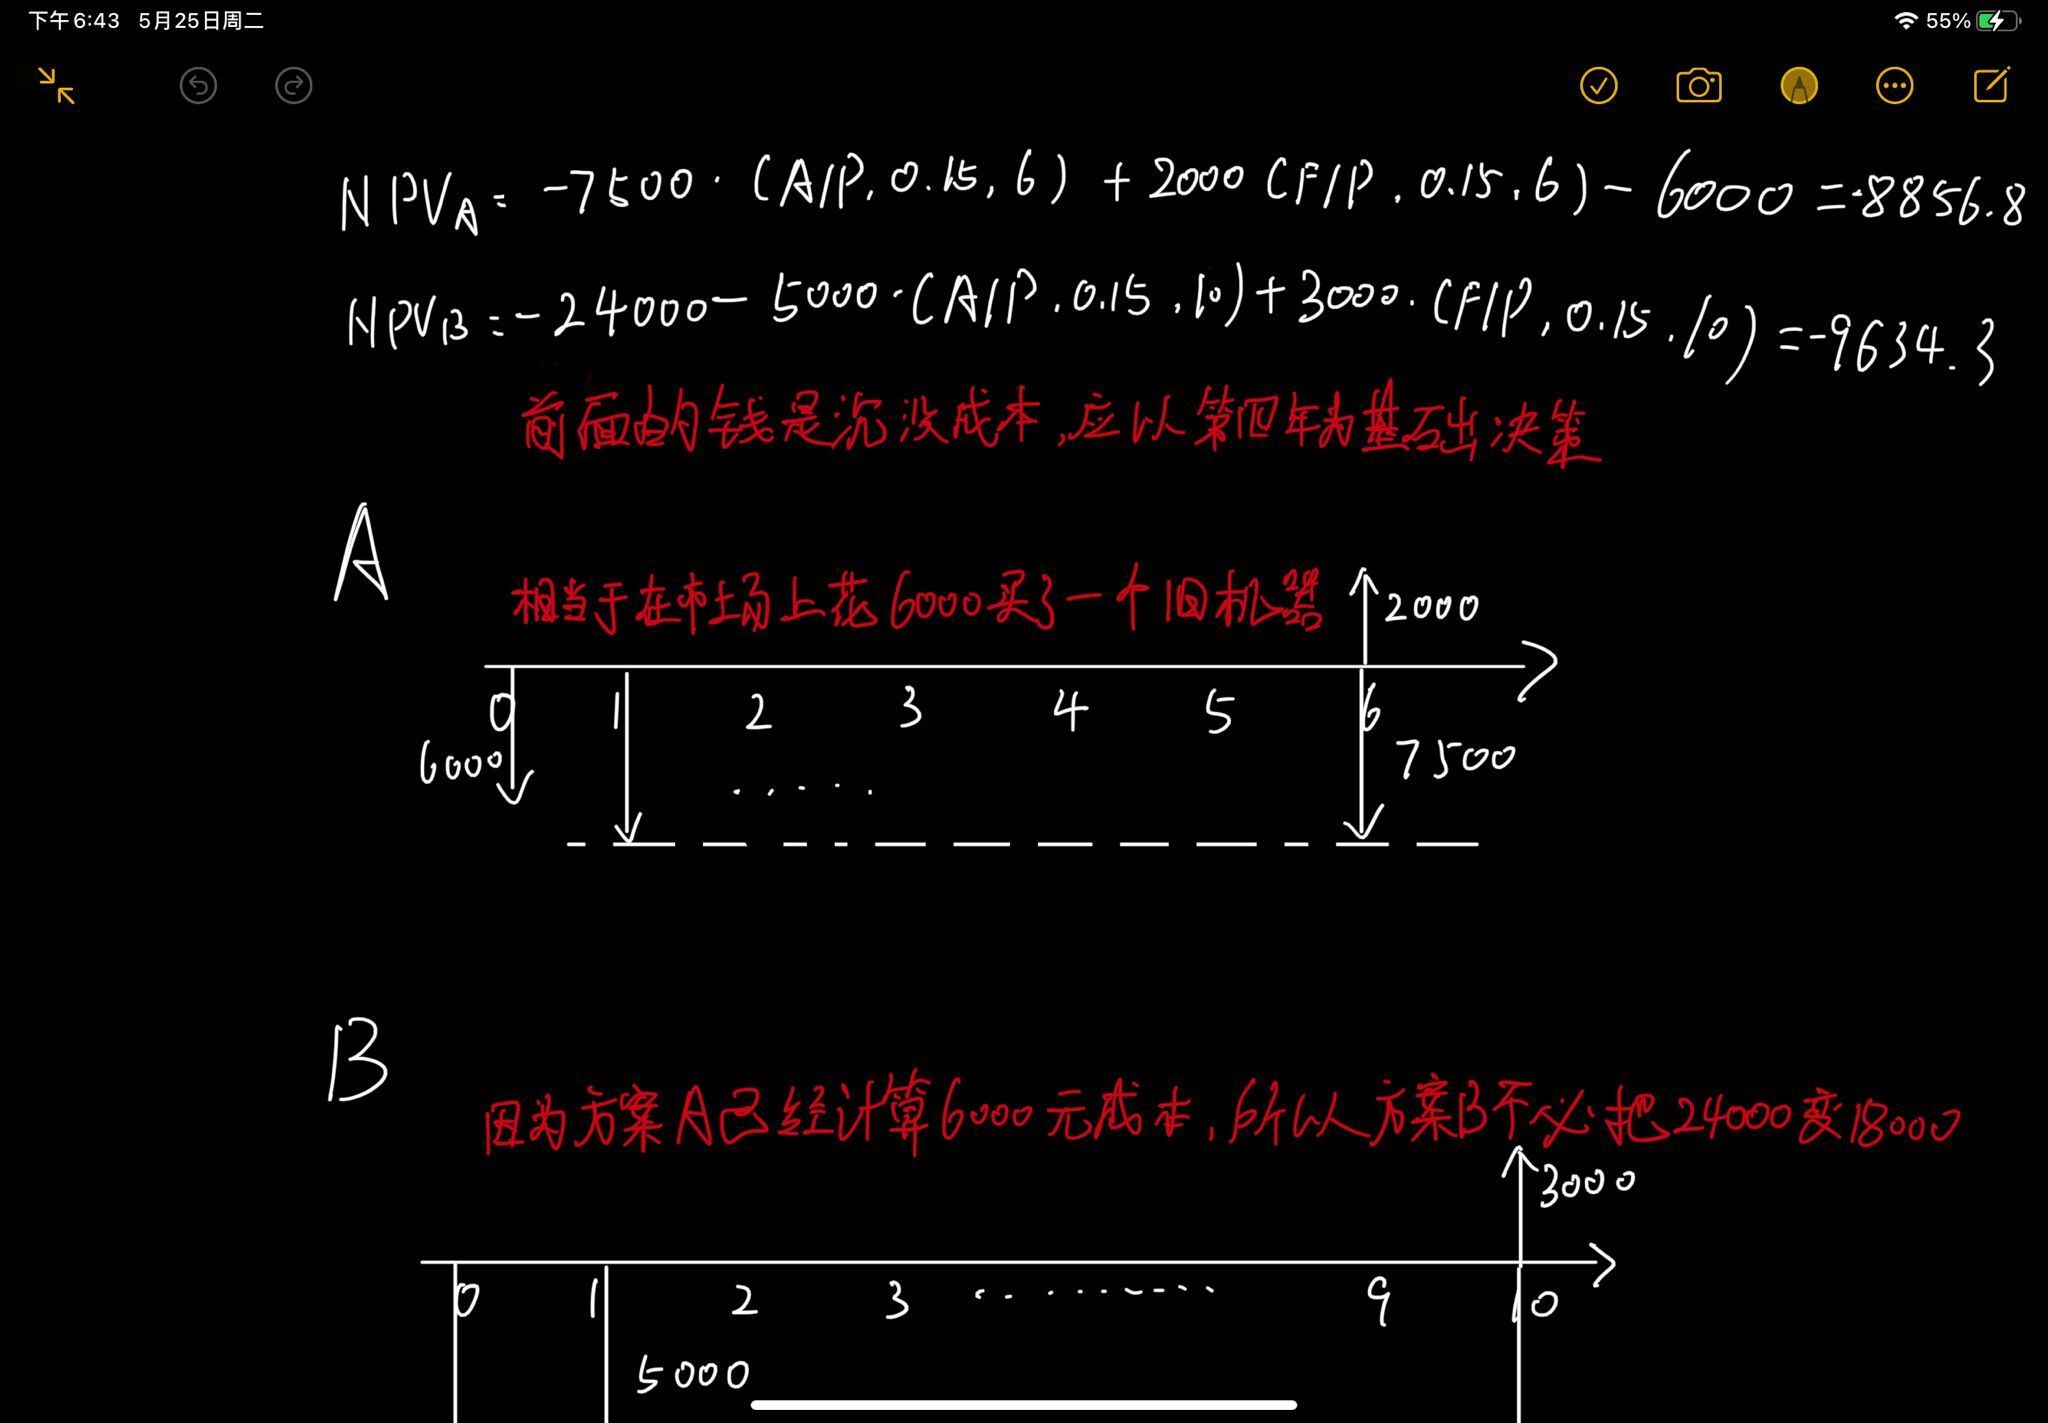 下午6:43 5月25日周二 55%
NPVA = -7500·(A/P, 0.15, 6) + 2000 (F/P, 0.15, 6) - 6000 = -8856.8
NPVB = -24000 - 5000·(A/P, 0.15, 10) + 3000·(F/P, 0.15, 10) = -9634.3
前面的钱是沉没成本,应以第四年为基础决策
A
相当于在市场上花6000买了一个旧机器
2000
0 1 2 3 4 5 6
6000
7500
B
因为方案A已经计算6000元成本,所以方案B不必把24000变18000
3000
0 1 2 3 9 10
5000